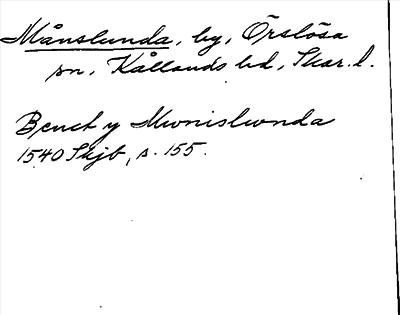 Månslunda, by, Örslösa
sn, Kållands hd, Skar. l.
Benct y Mwnislwnda
1540 Skjb, s. 155.